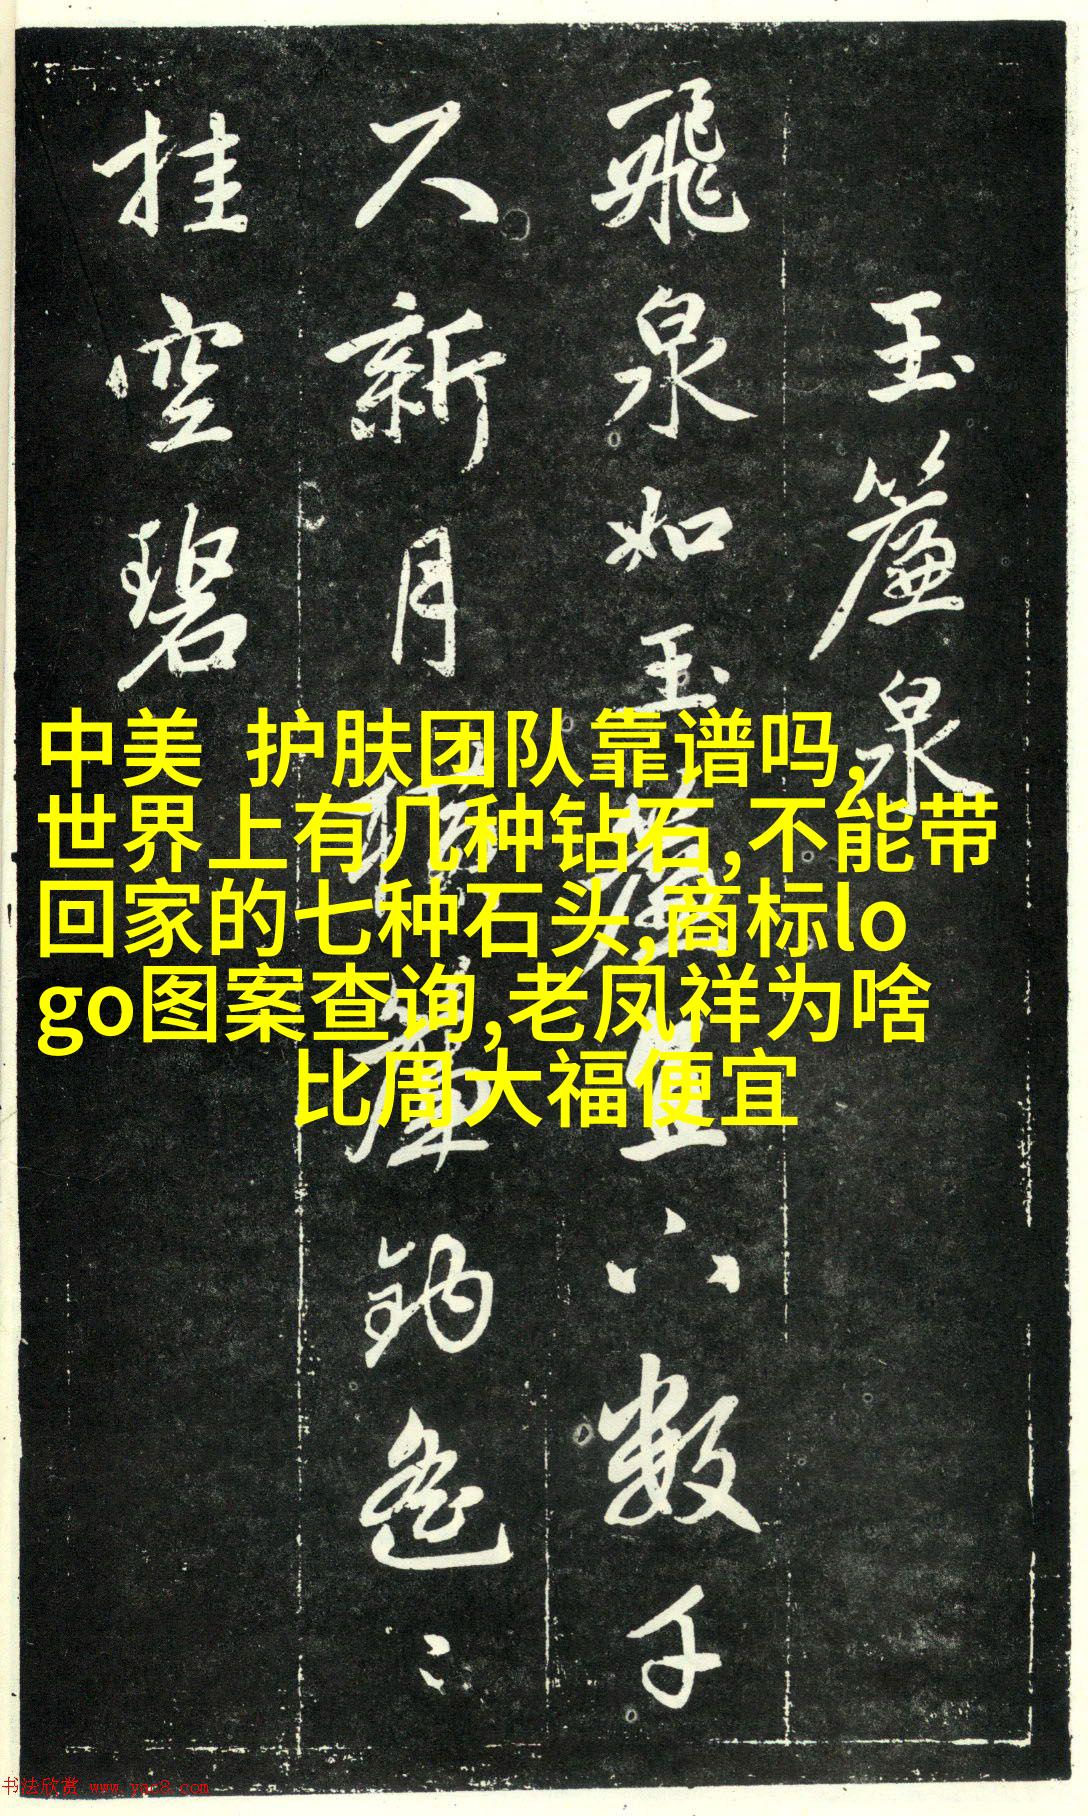 玉簾泉
飛泉如玉簾直下數千
尺新月橫簾鈎遙〻
挂空碧
中美 护肤团队靠谱吗,
世界上有几种钻石,不能带
回家的七种石头,商标lo
go图案查询,老凤祥为啥
比周大福便宜
书法欣赏 www.yac8.com